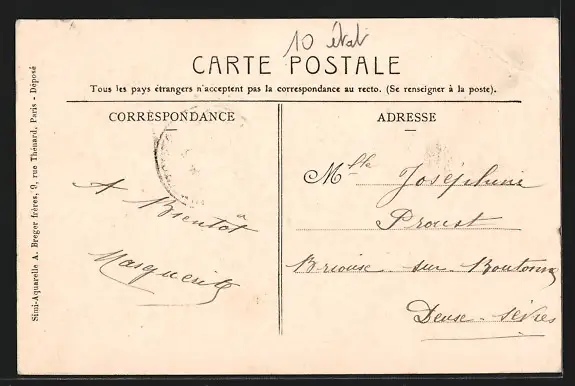 10 état
CARTE POSTALE
Tous les pays étrangers n'acceptent pas la correspondance au recto. (Se renseigner à la poste).
CORRESPONDANCE
ADRESSE
Simi-Aquarelle A. Breger frères, 9, rue Thénard, Paris - Déposé
A Bientôt
Marguerite
Mlle Joséphine
Proust
Brioux sur Boutonne
Deux-Sèvres